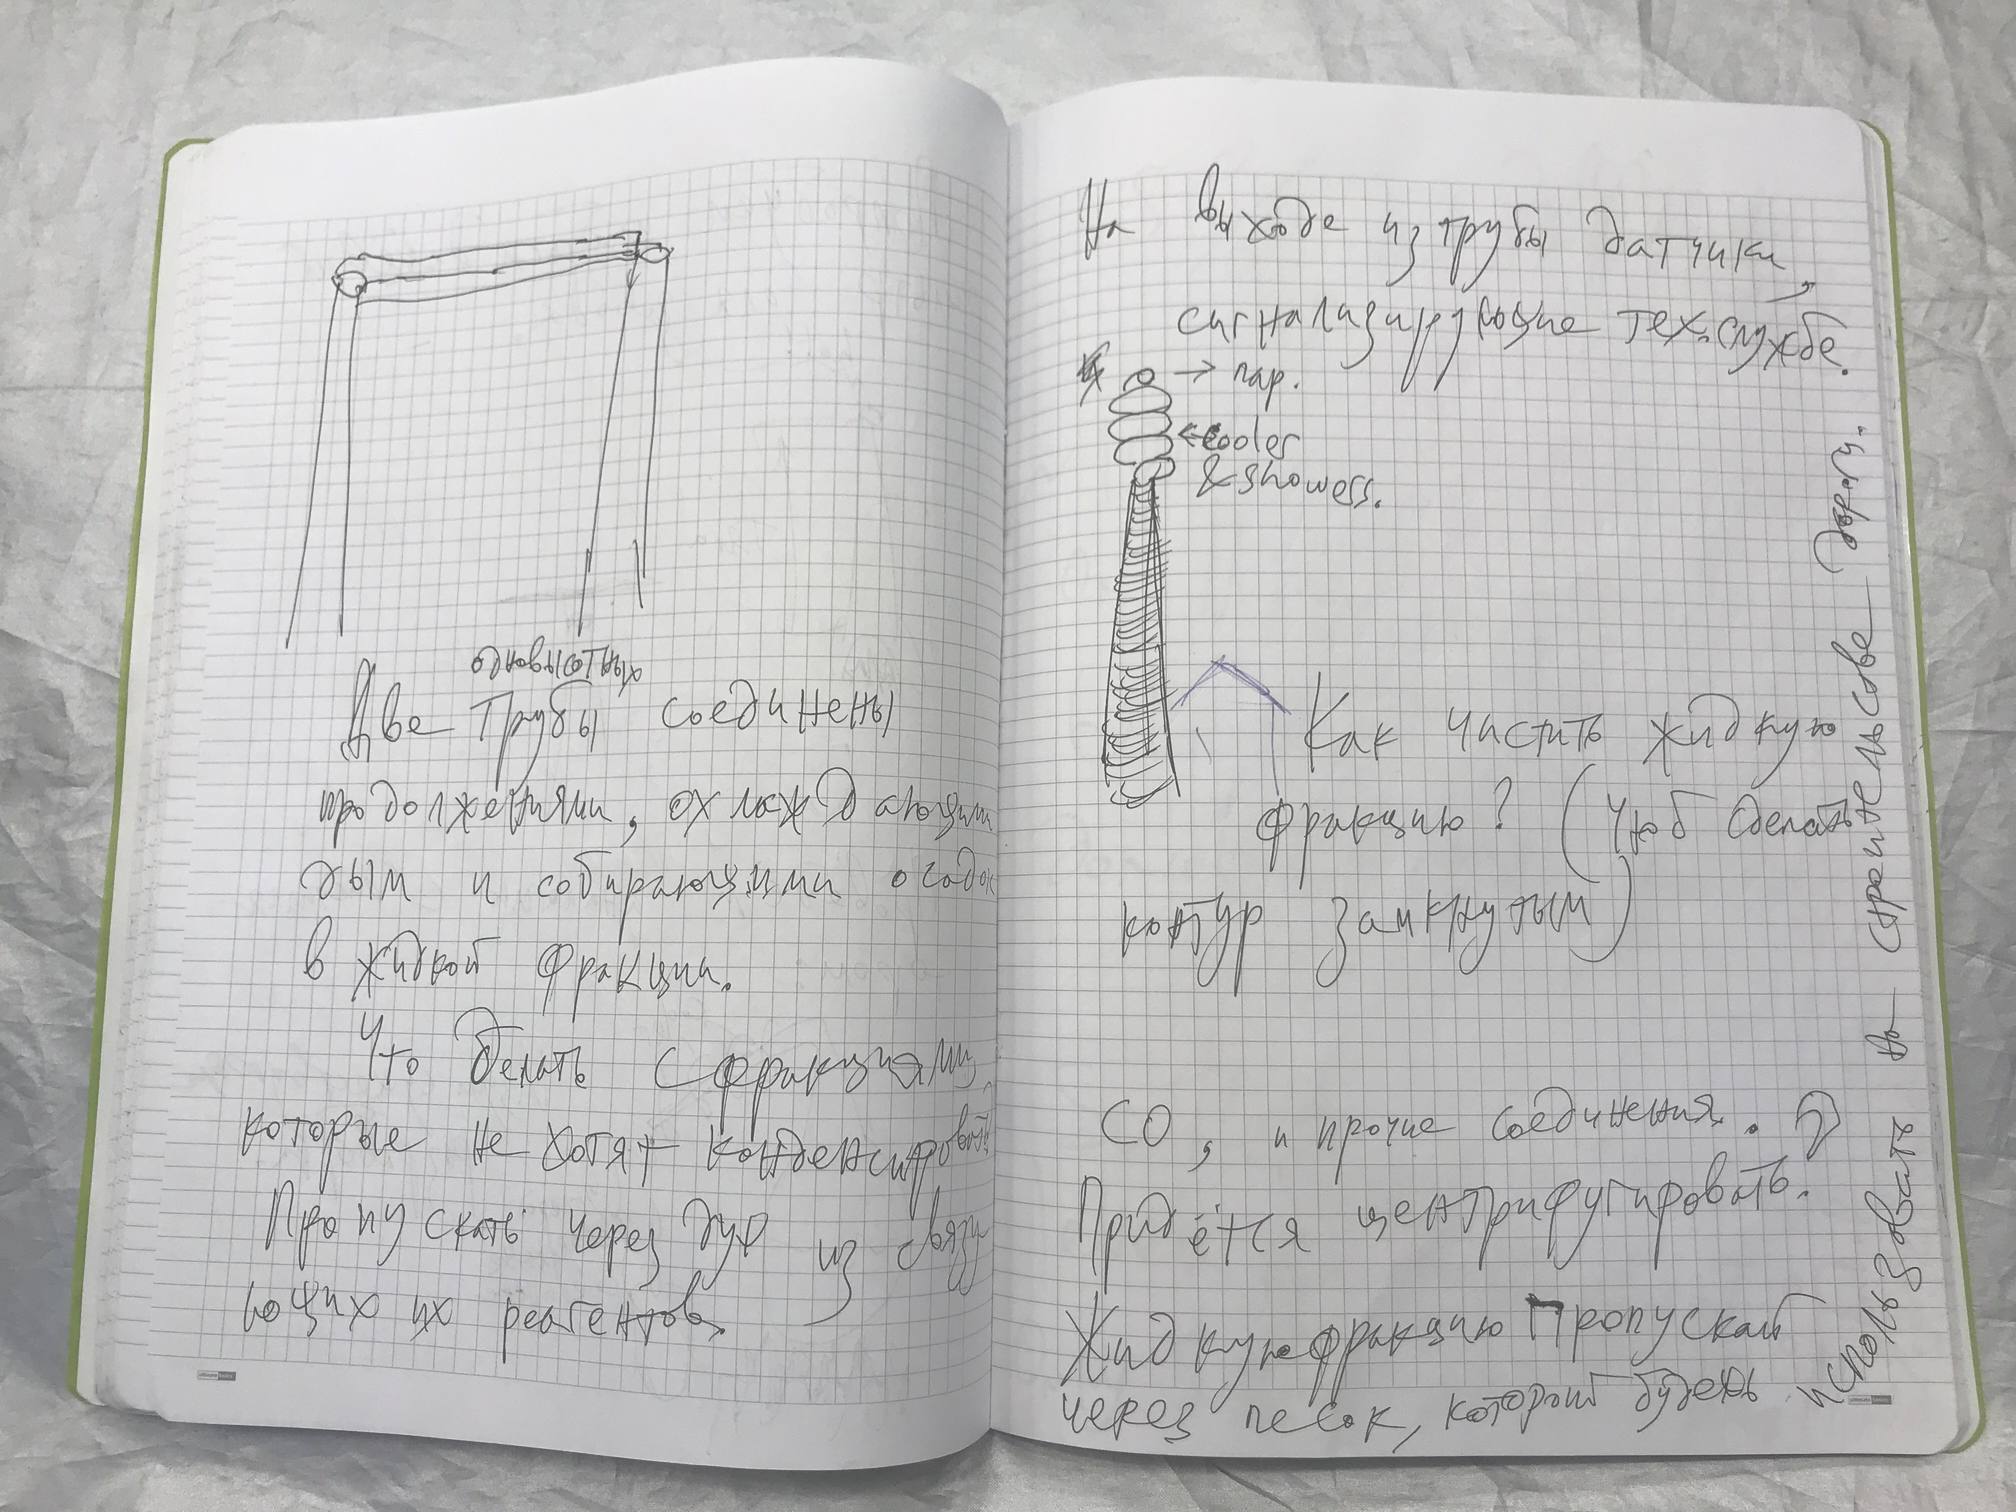 одновысотных
Две трубы соединены
продолжениями, охлаждающими
дым и собирающими осадок
в жидкой фракции.
Что делать с фракциями,
которые не хотят конденсировать
Пропускать через душ из связу
ющих их реагентов.
На выходе из трубы датчики,
сигнализирующие тех.службе.
→ пар.
← cooler
& showers.
Как чистить жидкую
фракцию? (Чтоб сделать
контур замкнутым)
СО, и прочие соединения. ?
Придётся центрифугировать.
Жидкую фракцию пропускай
через песок, который будешь
использовать на строительстве дорог.